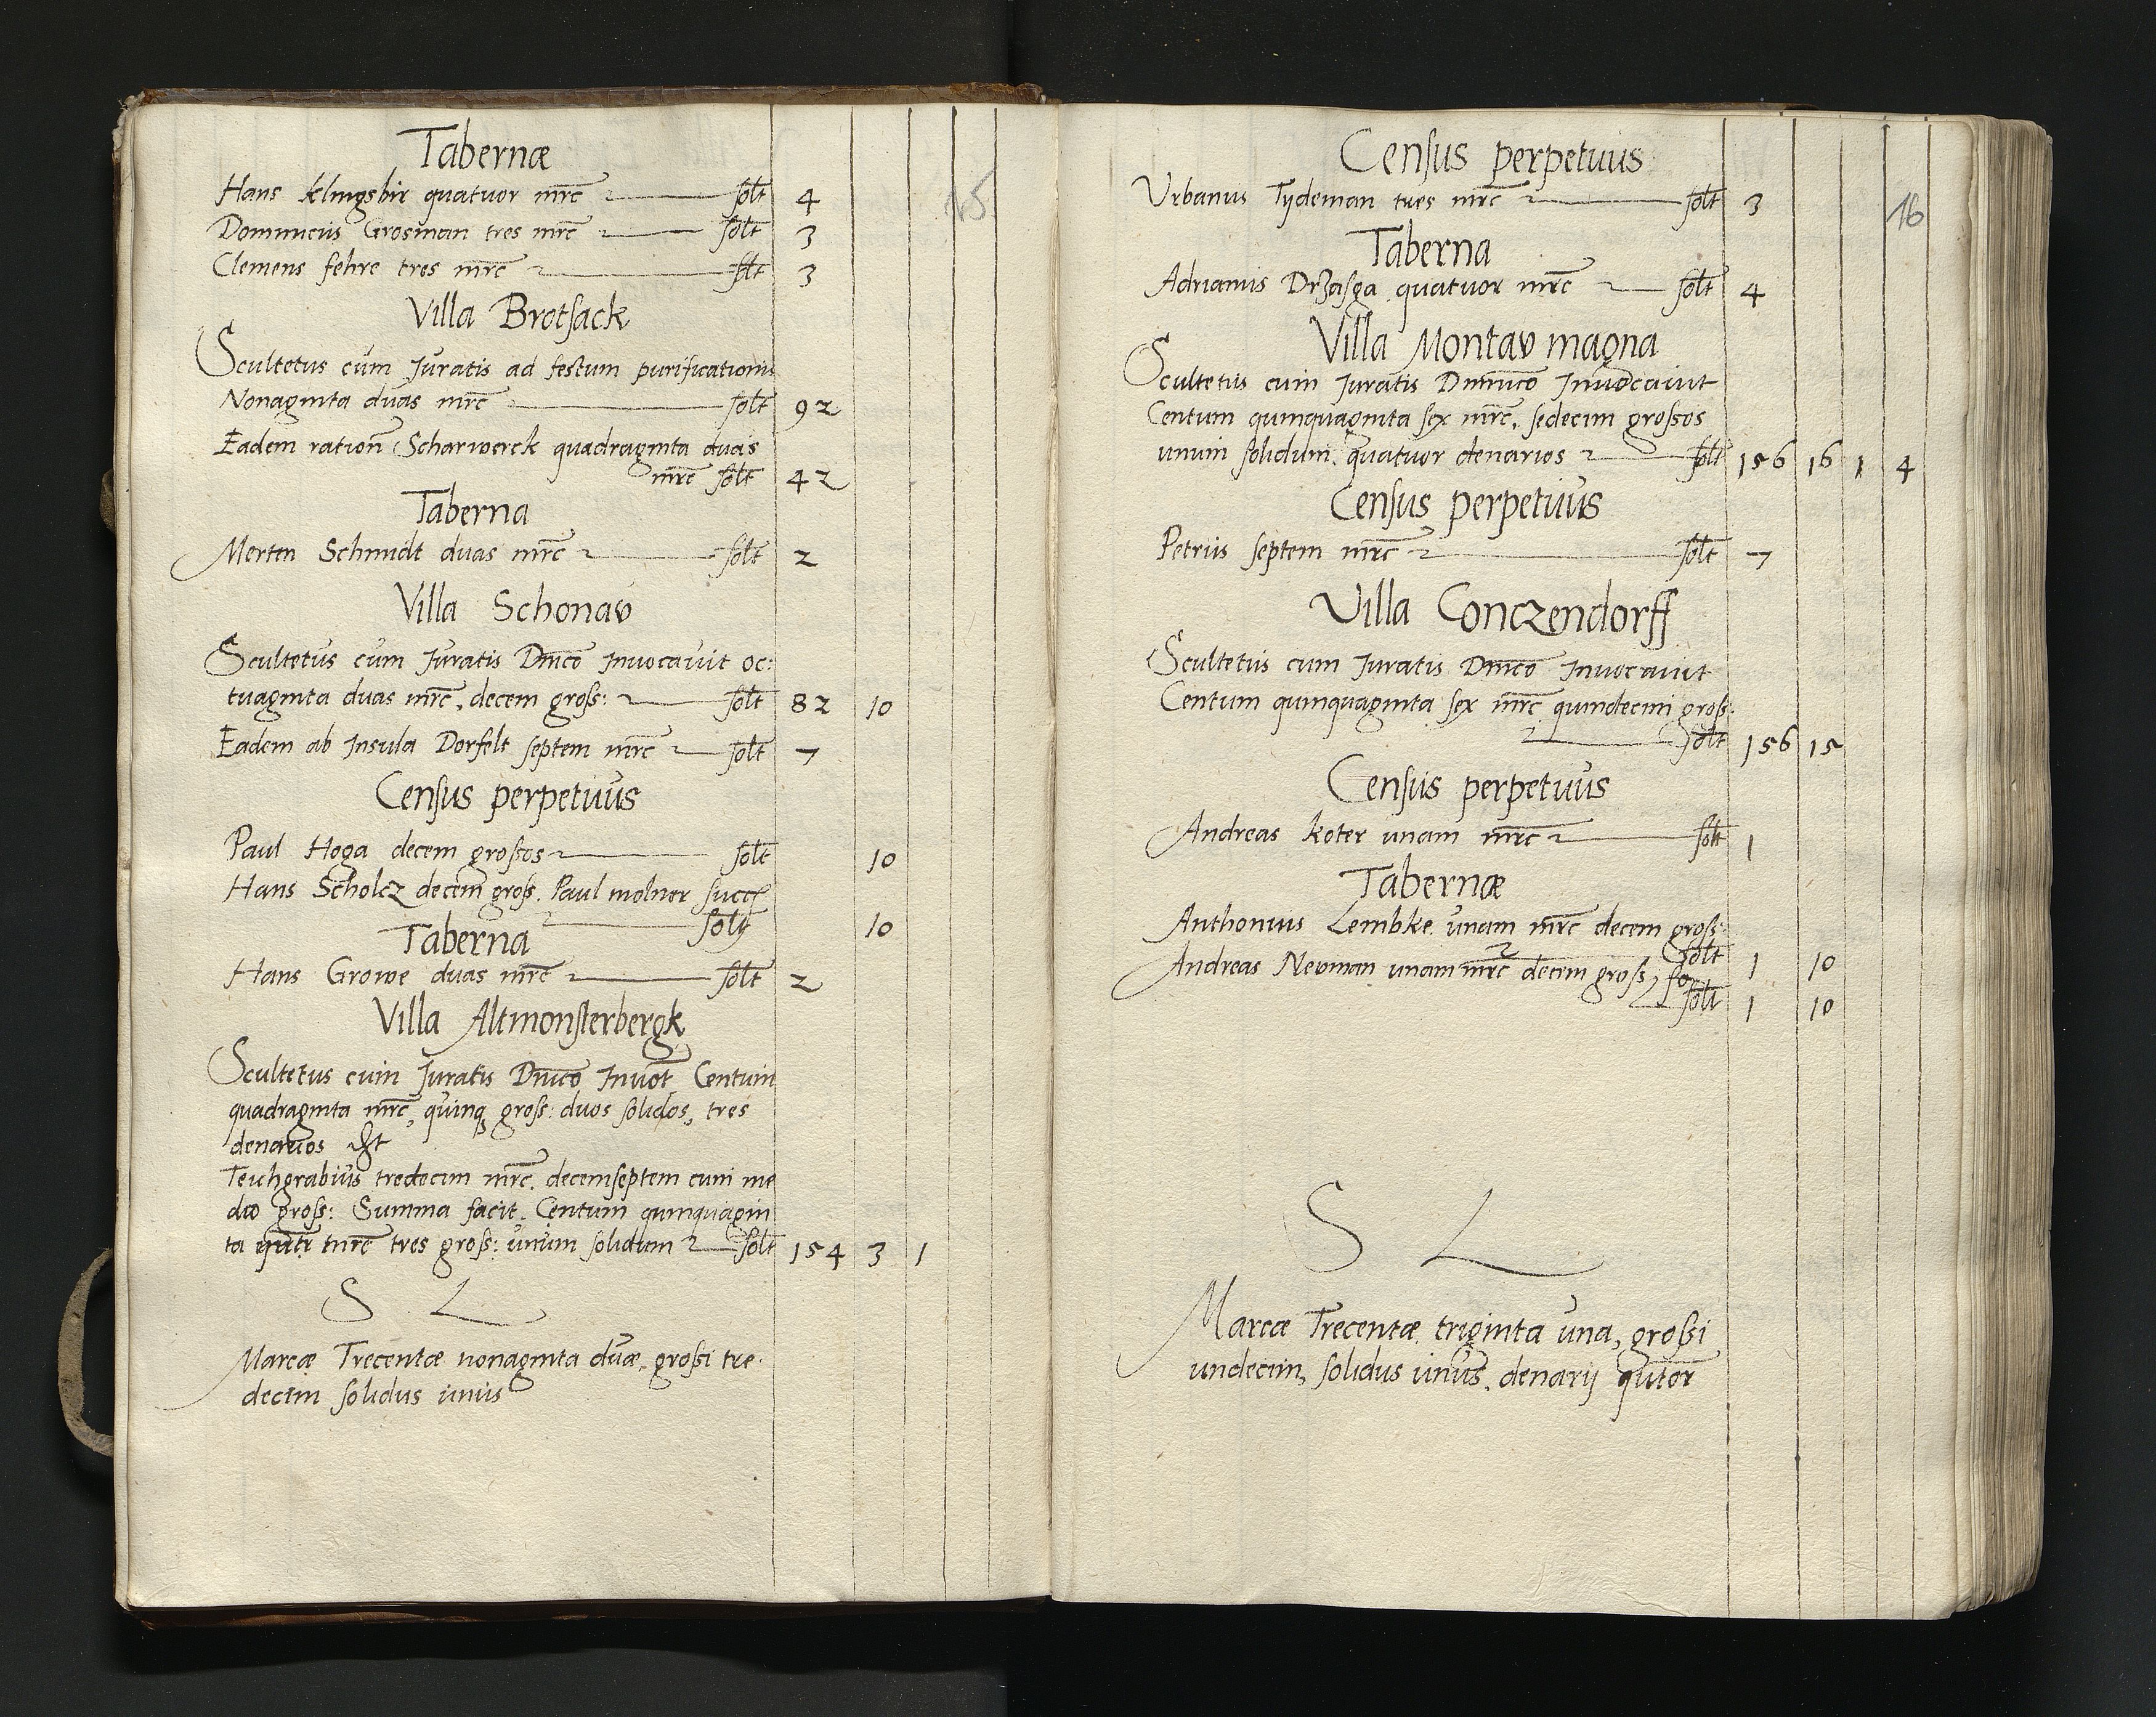 Tabernæ
15
Hans klingsbir quatuor mrc solt 4
Dominicus Grosman tres mrc solt 3
Clemens fehre tres mrc solt 3
Villa Brotsack
Scultetus cum Juratis ad festum purificationis
Nonaginta duas mrc solt 92
Eadem ration Scharwerck quadraginta duas
mrc solt 42
Taberna
Merten Schmidt duas mrc solt 2
Villa Schonav
Scultetus cum Juratis Dnico Invocavit oc:
tuaginta duas mrc, decem gross: solt 82 10
Eadem ab Insula Dorfelt septem mrc solt 7
Census perpetuus
Paul Hoga decem grossos solt 10
Hans Scholcz decem gross. Paul molner succ
solt 10
Taberna
Hans Growe duas mrc solt 2
Villa Altmonsterbergk
Scultetus cum Juratis Dnico Invot Centum
quadraginta mrc, quinq gross: duos solidos, tres
denarios
Teichgrabius tredecim mrc. decemseptem cum me
dio gross: Summa facit. Centum quinquagin
ta qutr mrc tres gross: unum solidum solt 154 3 1
S L
Marcæ Trecentæ nonaginta duæ, grossi tre
decim solidus unus
Census perpetuus
Urbanus Tydeman tres mrc solt 3
16
Taberna
Adrianus Drzasga quatuor mrc solt 4
Villa Montav magna
Scultetus cum Juratis Dnico Invocavit
Centum quinquaginta sex mrc, sedecim grossos
unum solidum, quatuor denarios solt 156 16 1 4
Census perpetuus
Petrus septem mrc solt 7
Villa Conczendorff
Scultetus cum Juratis Dnico Invocavit
Centum quinquaginta sex mrc quindecim gross:
solt 156 15
Census perpetuus
Andreas koter unam mrc solt 1
Tabernæ
Anthonius Lembke unam mrc decem gross:
solt 1 10
Andreas Nevman unam mrc decem gross, so
solt 1 10
S L
Marcæ Trecentæ triginta una, grossi
undecim, solidus unus, denarij qutor